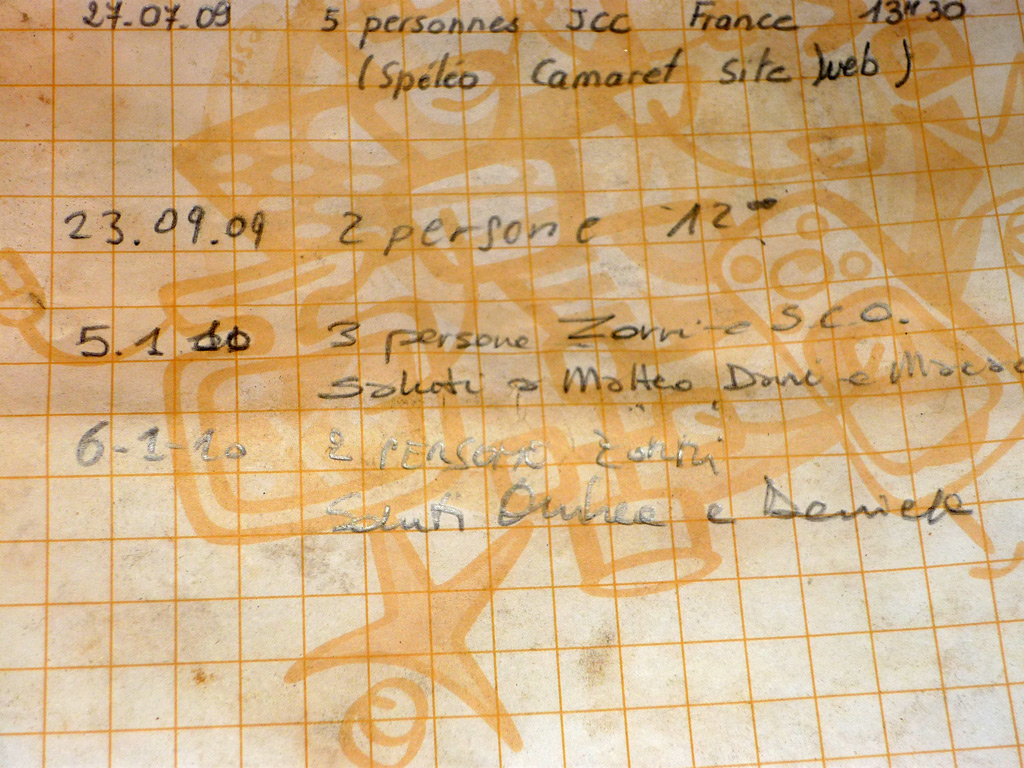 27.07.09 5 personnes JCC France 13H30
(Spéléo Camaret site web)
23.09.09 2 persone 12
5.1 10 3 persone Zorri e S.C.O.
Matteo Dani e
6-1-10 2 PERSONE
Saluti e Daniele